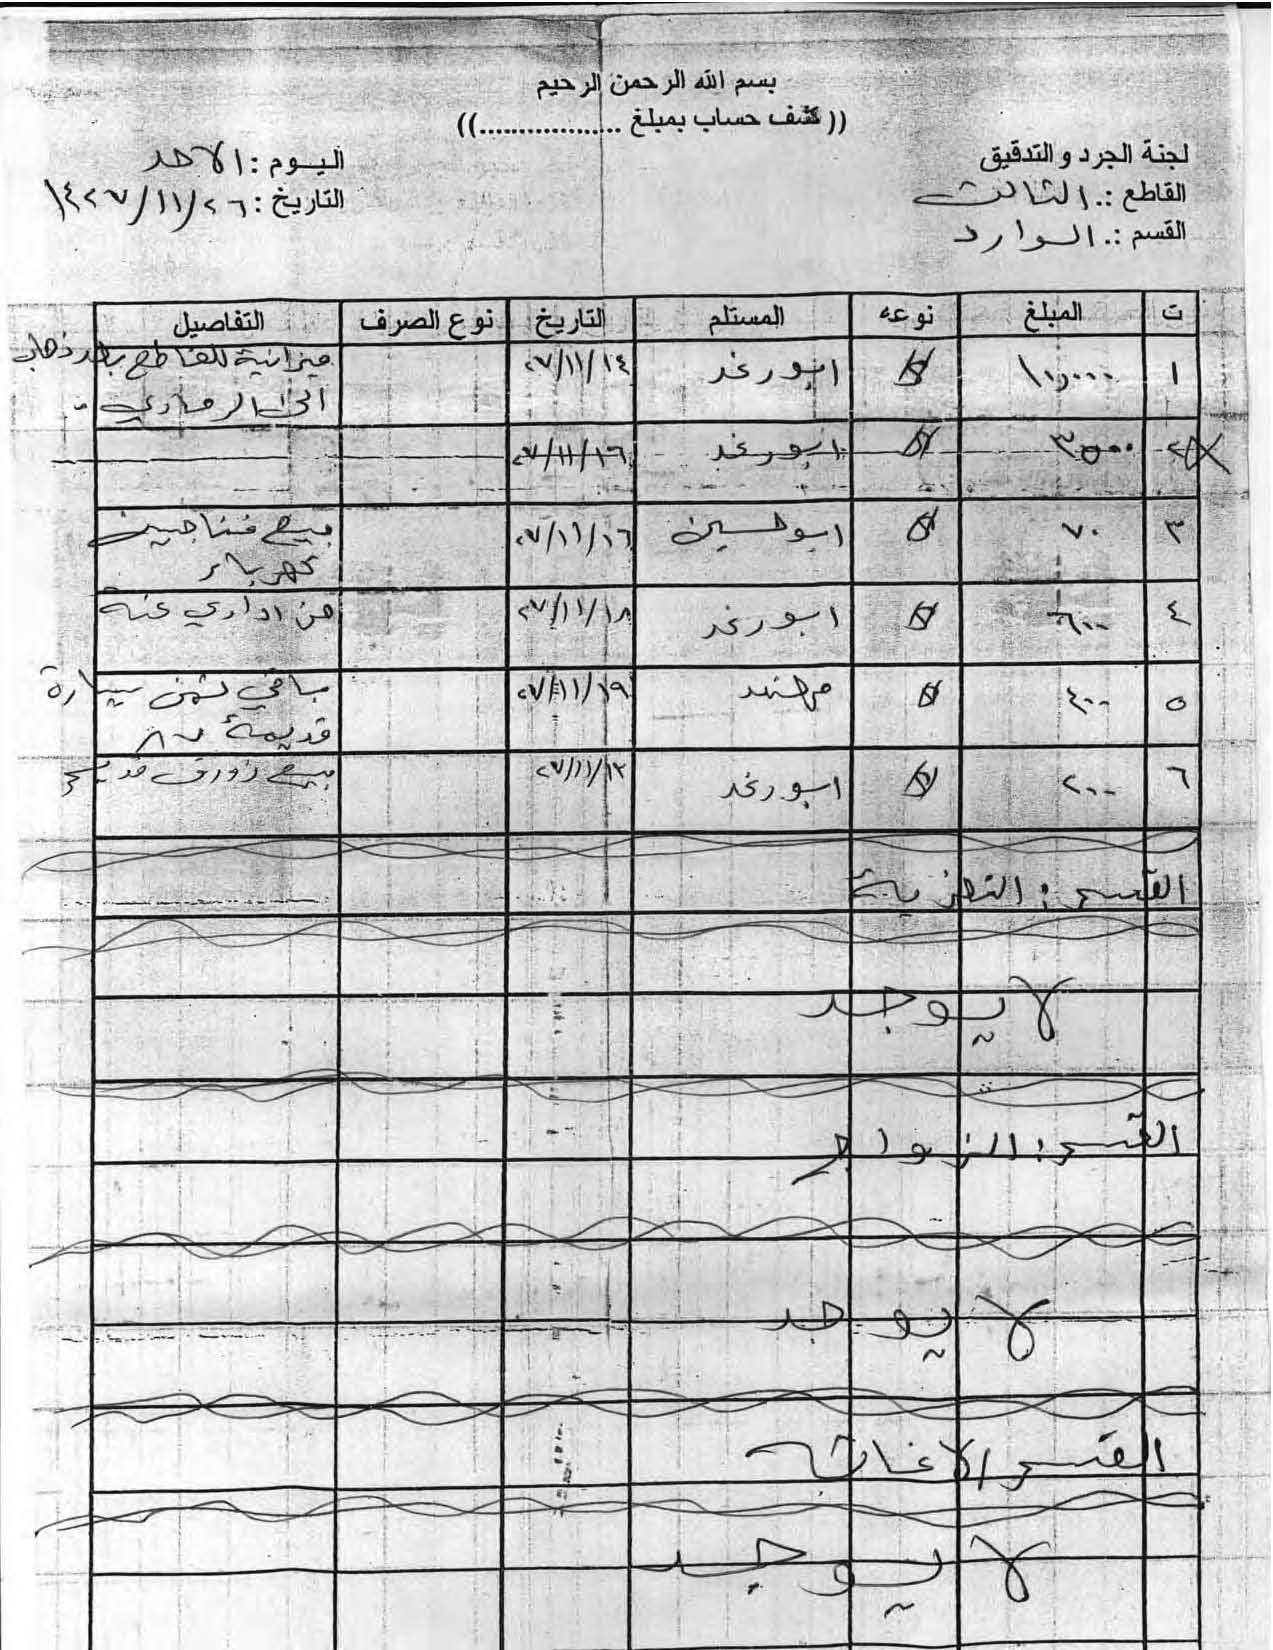 بسم الله الرحمن الرحيم
(( كشف حساب بمبلغ ..................))
لجنة الجرد والتدقيق
اليوم : الاحد
القاطع :. الثالث
التاريخ : ١٤٢٧/١١/٢٦
القسم :. الوارد
ت المبلغ نوعه المستلم التاريخ نوع الصرف التفاصيل
١ ١٠,٠٠٠ $ ابو رغد ٢٧/١١/١٤ ميزانية للقاطع بعد ذهاب
الى الرمادي
٢ ٣٥٠٠٠ $ ابو رغد ٢٧/١١/١٦
٣ ٧٠ $ ابو حسين ٢٧/١١/١٦ بيع فناجين
كهرباء
٤ ٦٠٠ $ ابو رغد ٢٧/١١/١٨ من اداري عنه
٥ ٤٠٠ $ مهند ٢٧/١١/١٩ باقي ثمن سيارة
قديمة
٦ ٢٠٠ $ ابو رغد ٢٧/١١/١٣ بيع زورق قديم
القسم : التعزية
لا يوجد
القسم : الزواج
لا يوجد
القسم / الاغاثة
لا يوجد